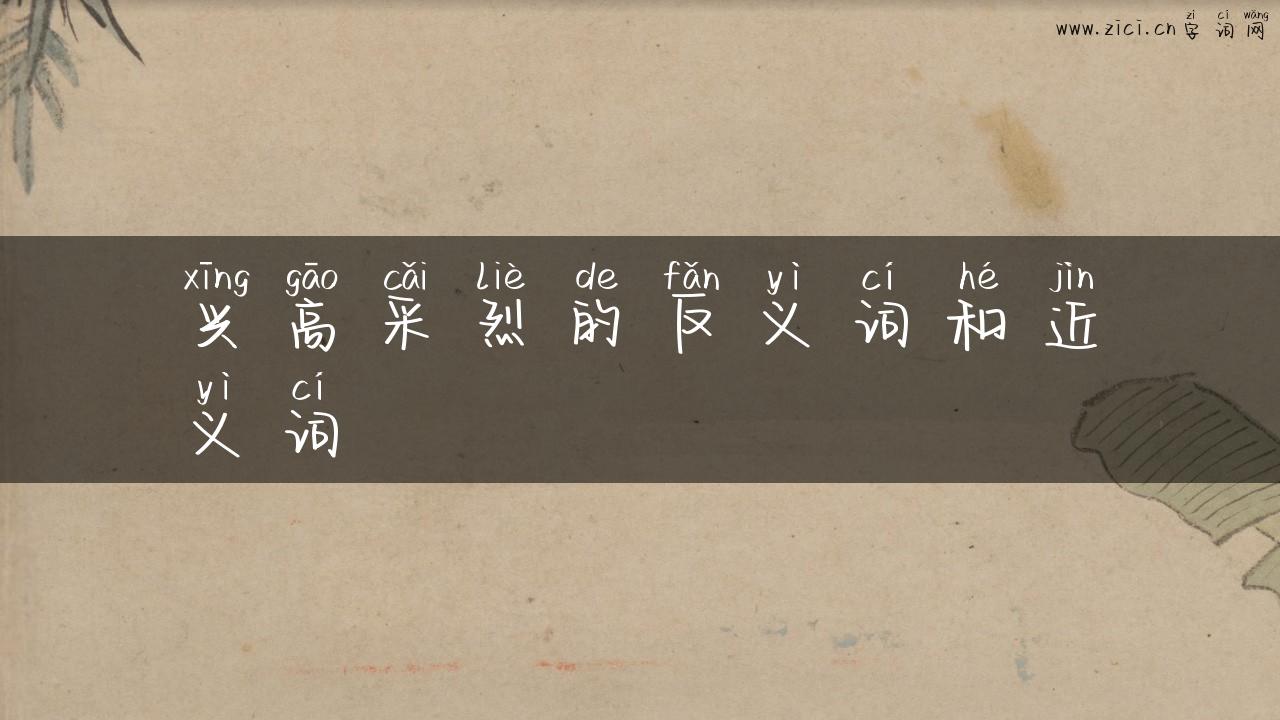 zì cí wǎng
www.zici.cn 字词网
xīng gāo cǎi liè de fǎn yì cí hé jìn
兴高采烈的反义词和近
yì cí
义词